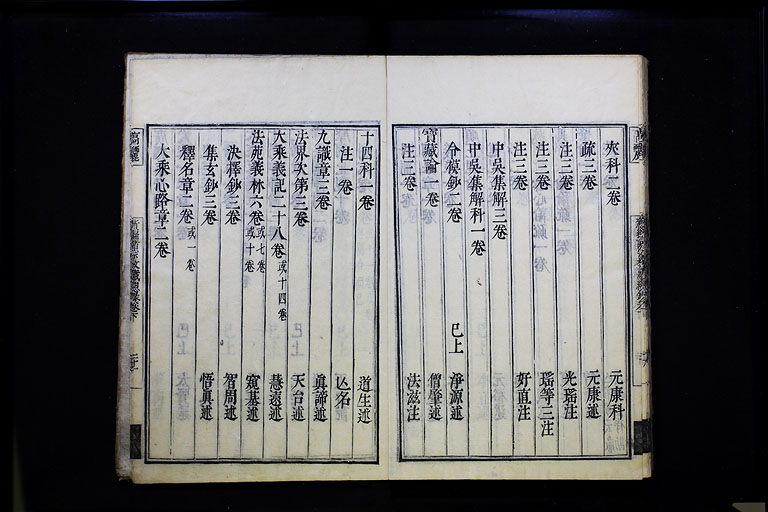 夾科二卷 元康科
疏三卷 元康述
注三卷 光瑤注
注三卷 瑤等三注
注三卷 好直注
中吳集解三卷
中吳集解科一卷
令模鈔二卷 已上 淨源述
寶藏論一卷 僧肇述
注三卷 法滋注
十四科一卷 道生述
注一卷 亾名
九識章三卷 眞諦述
法界次第三卷 天台述
大乘義記二十八卷或十四卷 慧遠述
法苑義林六卷或七卷或十卷 窺基述
決擇鈔三卷 智周述
集玄鈔三卷 悟眞述
釋名章二卷或一卷
大乘心路章二卷